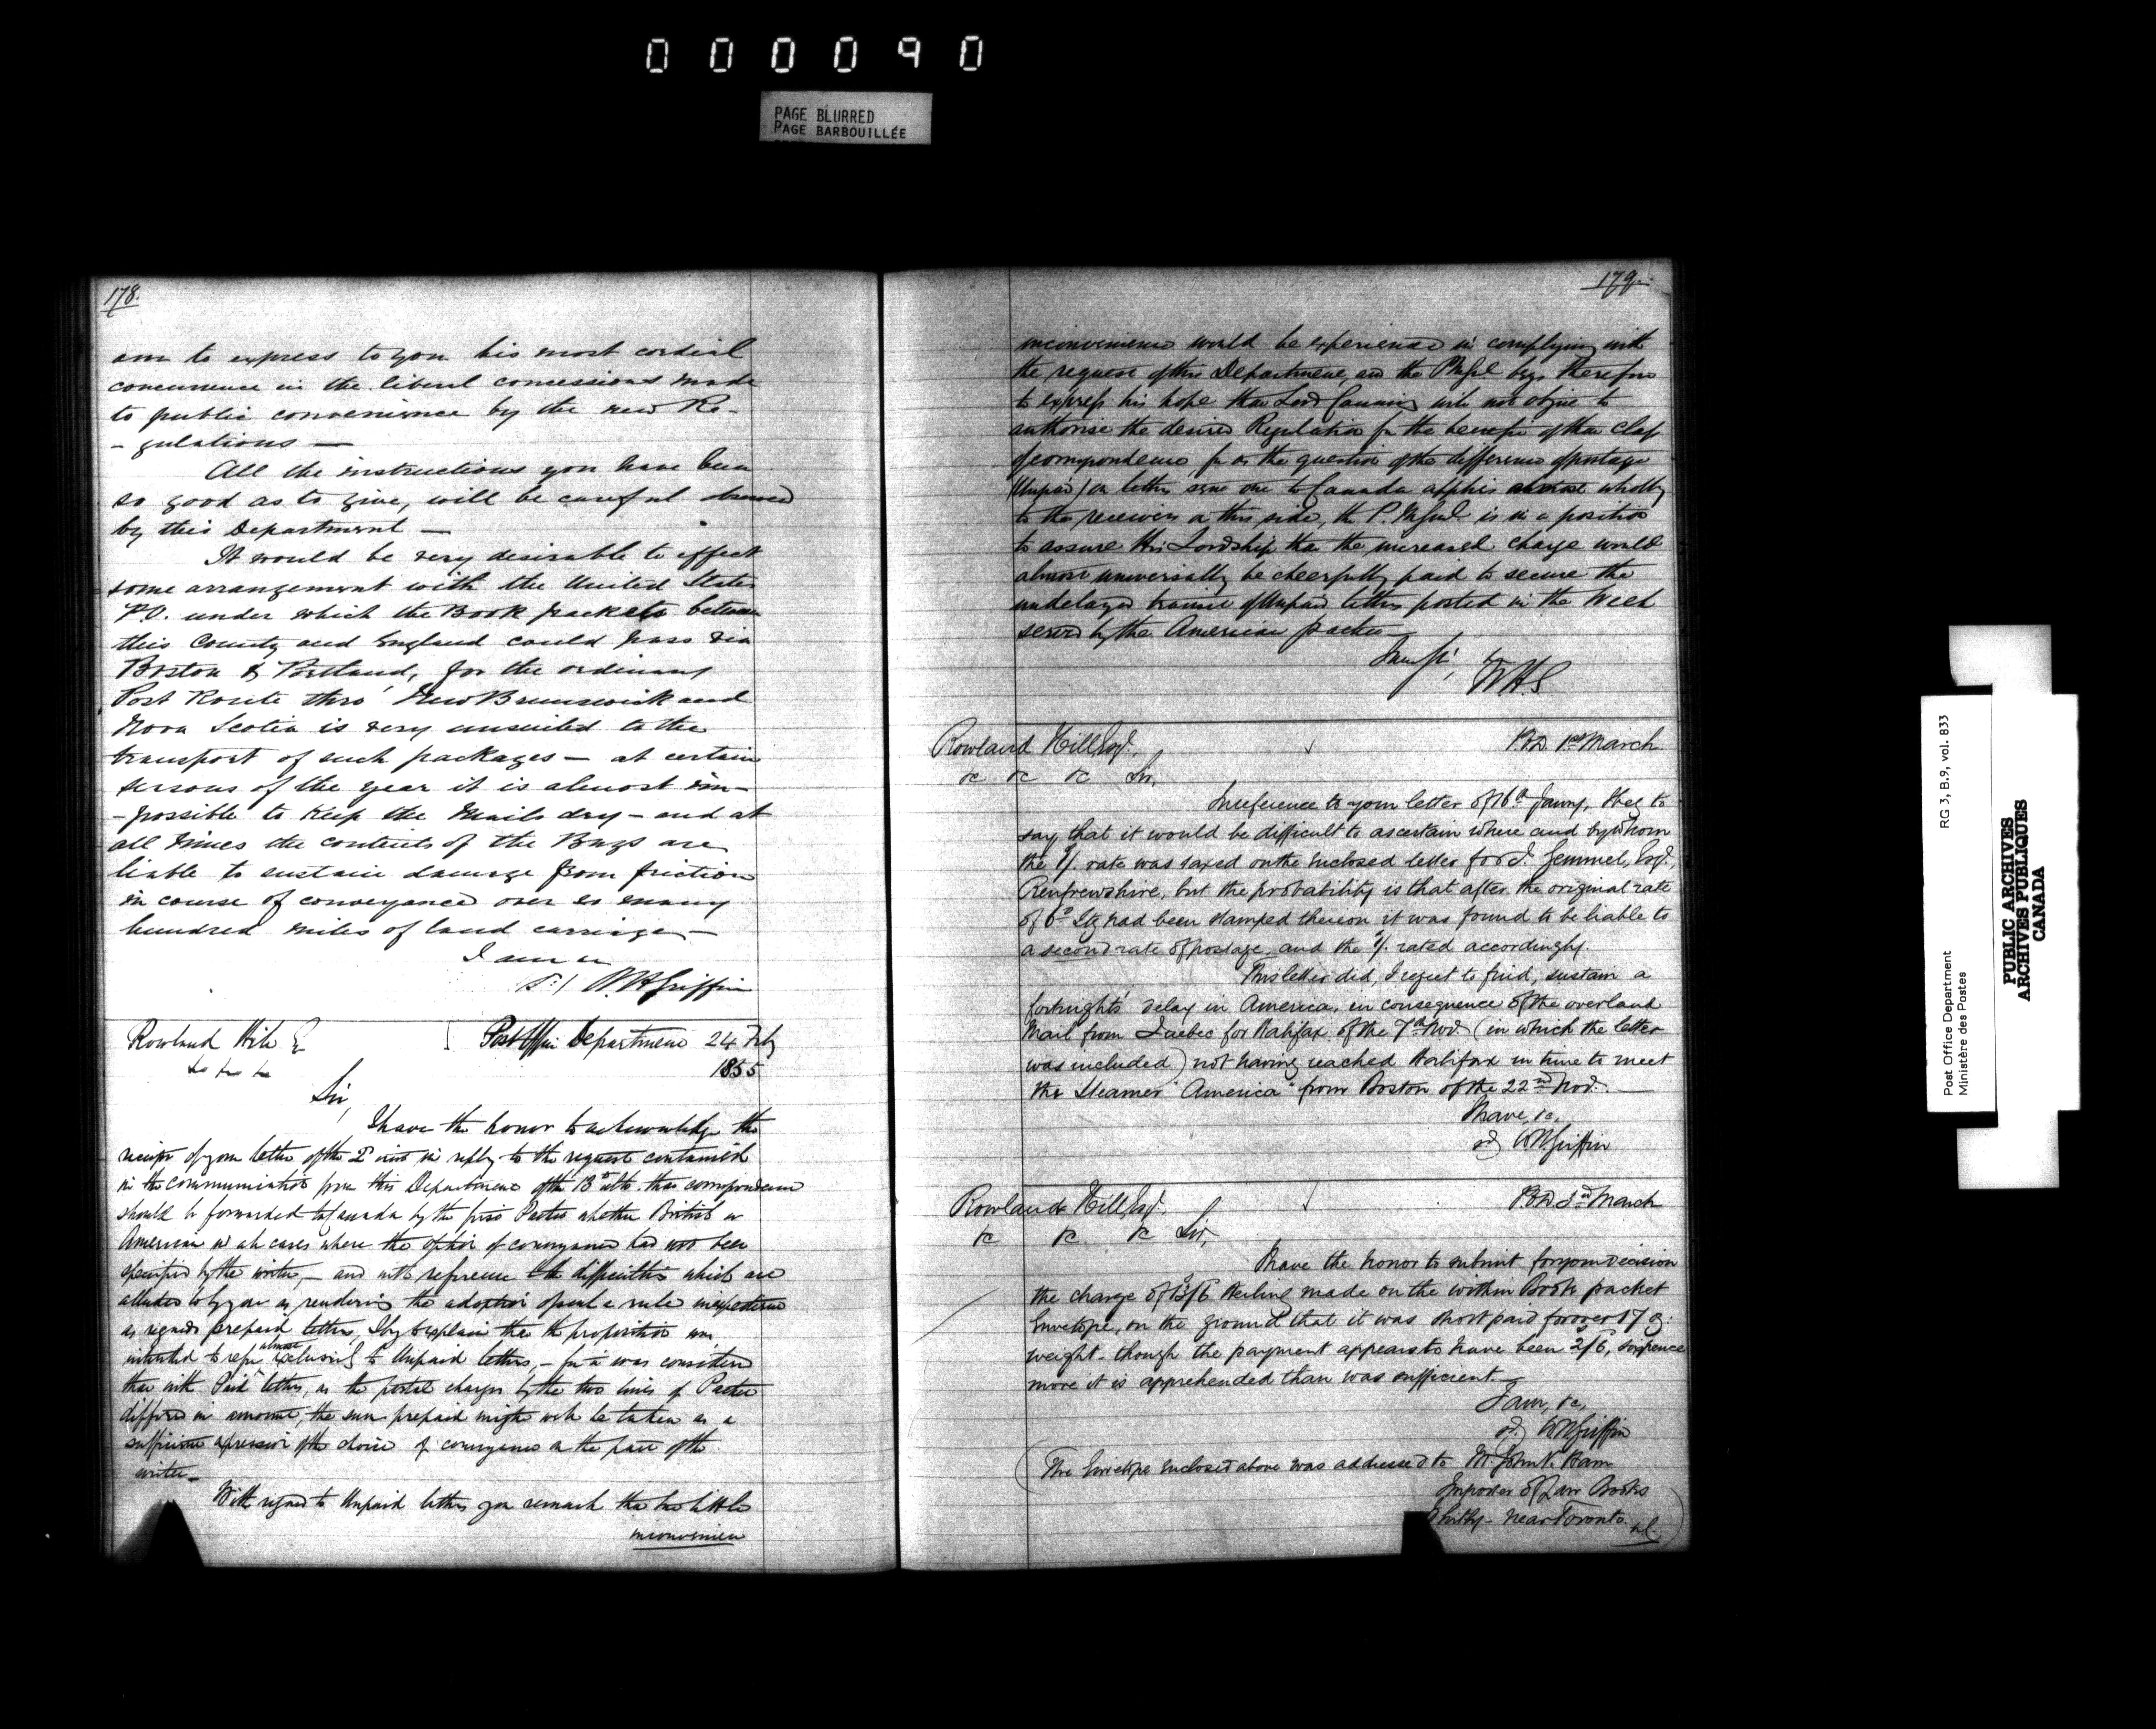 000090
PAGE BLURRED
PAGE BARBOUILLÉE
178.
am to express to you his most cordial
concurrence in the liberal concessions made
to public convenience by the new Re-
- gulations —
All the instructions you have been
so good as to give, will be careful observed
by this Department —
It would be very desirable to effect
some arrangement with the United States
P.O. under which the Book packets between
this County and England could pass via
Boston & Portland, for the ordinary
Post Route thro' New Brunswick and
Nova Scotia is very unsuited to the
transport of such packages — at certain
seasons of the year it is almost im-
- possible to keep the Mails dry — and at
all times the contents of the Bags are
liable to sustain damage from friction
in course of conveyance over so many
hundred miles of land carriage, —
I am
W H Griffin
Rowland Hill E
Post Office Department 24 Feby
1855
Sir,
I have the honor to acknowledge the
receipt of your letter of the 2d inst in reply to the request contained
in the communication from this Department of the 13th ulto. that correspondence
should be forwarded to Canada by the first Packet whether British or
American in all cases where the option of conveyance had not been
specified by the writer, — and with reference to the difficulties which are
alluded to by you as rendering the adoption of such a rule inexpedient
as regards prepaid letters, I beg to explain that the proposition was
intended to refer almost exclusively to Unpaid letters, — for it was considered
that with Paid letters, as the postal charges by the two lines of Packet
differed in amount, the sum prepaid might well be taken as a
sufficient expression of the choice of conveyance on the part of the
writer —
With regard to Unpaid letters you remark that but little
inconvenien
179.
inconvenience would be experienced in complying with
the request of this Department, and the PMGrl begs therefore
to express his hope that Lord Canning will not object to
authorise the desired Regulation for the benefit of that class
of correspondence for as the question of the difference of postage
(Unpaid) on letters sent one to Canada applies almost wholly
to the receivers on this side, the P. MGrl is in a position
to assure His Lordship that the increased charge would
almost universally be cheerfully paid to secure the
undelayed transit of Unpaid letters posted in the Week
served by the American packet —
I am Sir,
WHG
Rowland Hill Esq.
P.O.D. 1st March
&c &c &c Sir,
In reference to your letter of 16th Jany, I beg to
say that it would be difficult to ascertain where and by whom
the 1/. rate was taxed on the enclosed letter for J. Gemmel, Esq.,
Renfrewshire, but the probability is that after the original rate
of 6d Stg had been stamped thereon it was found to be liable to
a second rate of postage, and the 1/. rated accordingly.
This letter did, I regret to find, sustain a
fortnights' delay in America, in consequence of the overland
Mail from Quebec for Halifax of the 7th Nov. (in which the letter
was included) not having reached Halifax in time to meet
the Steamer "America" from Boston of the 22nd Nov. —
I have, &c.
sd) W H Griffin
Rowland Hill, Esq.
P.O.D. 3rd March
&c &c &c Sir,
I have the honor to submit for your decision
the charge of 13/6 sterling made on the within Book packet
Envelope, on the ground that it was short paid for over 17 oz:
weight — though the payment appears to have been 2/6, sixpence
more it is apprehended than was sufficient. —
I am, &c,
sd.) W H Griffin
(The Envelope enclosed above was addressed to Mr. John V. Ham
Importer of Law Books
Whitby — near Toronto.
Post Office Department
Ministère des Postes
RG 3, B.9, vol. 833
PUBLIC ARCHIVES
ARCHIVES PUBLIQUES
CANADA